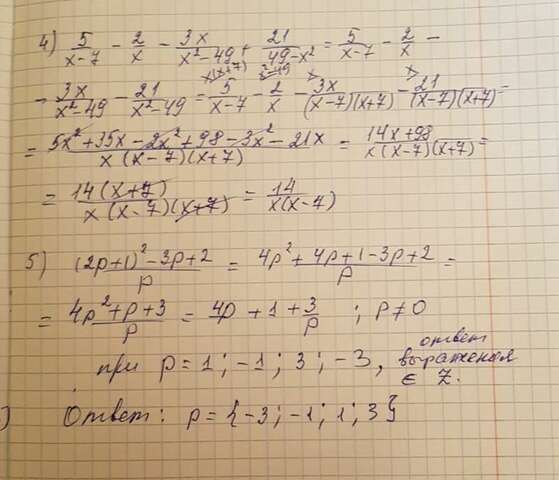 4) 5/(x-7) - 2/x - 3x/(x²-49) + 21/(49-x²) = 5/(x-7) - 2/x -
- 3x/(x²-49) - 21/(x²-49) = 5/(x-7) - 2/x - 3x/((x-7)(x+7)) - 21/((x-7)(x+7)) =
= (5x²+35x-2x²+98-3x²-21x)/(x(x-7)(x+7)) = (14x+98)/(x(x-7)(x+7)) =
= 14(x+7)/(x(x-7)(x+7)) = 14/(x(x-7))
5) ((2p+1)²-3p+2)/p = (4p²+4p+1-3p+2)/p =
= (4p²+p+3)/p = 4p+1+3/p ; p≠0
при p=1; -1; 3; -3, ответ выражения ∈ Z.
) Ответ: p={-3; -1; 1; 3}